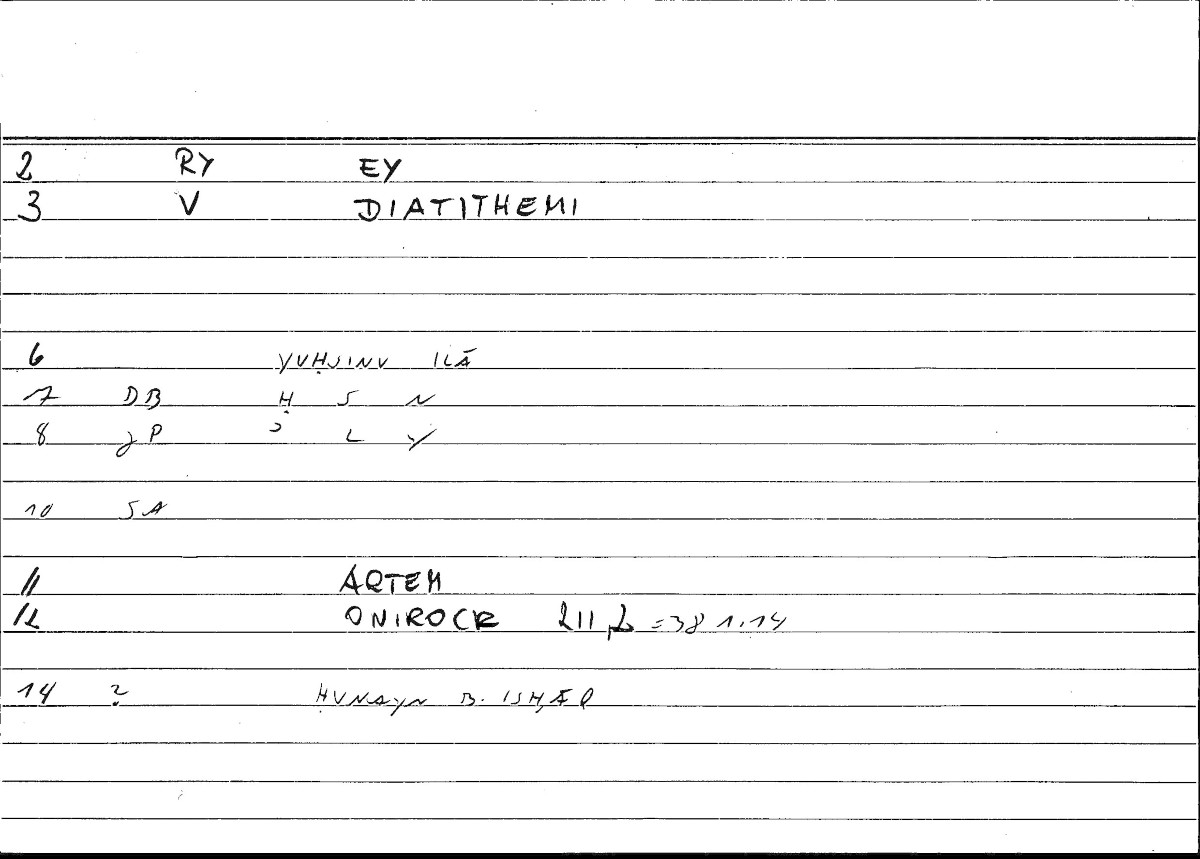 2 RY EY
3 V DIATITHEMI
6 YUḤSINU ILĀ
7 DB Ḥ S N
8 gP ʾ L Y
10 SA
11 ARTEM
12 ONIROCR 211,2 = 381.14
14 ? ḤUNAYN B. ISḤĀQ